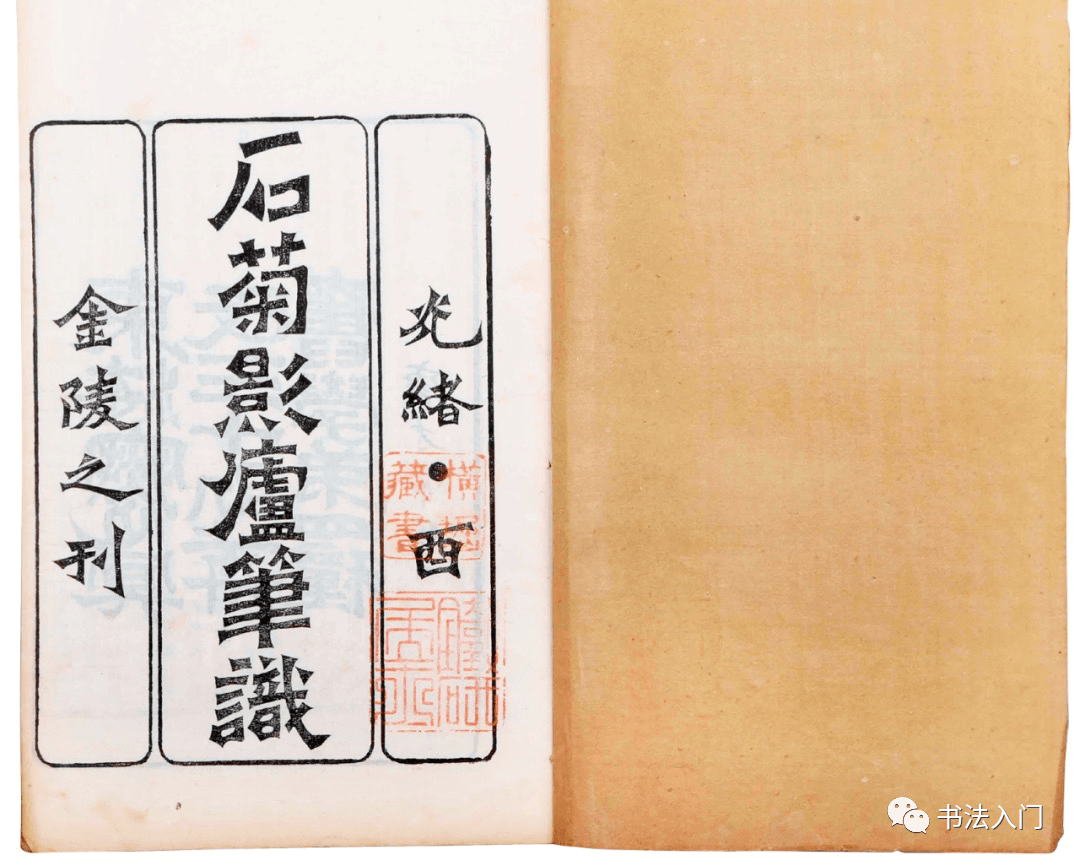 光緒丁酉
石菊影廬筆識
金陵之刊
藏書
书法入门